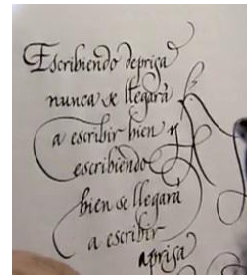 Escribiendo deprisa
nunca se llegará
a escribir bien y
escribiendo
bien se llegará
a escribir
aprisa